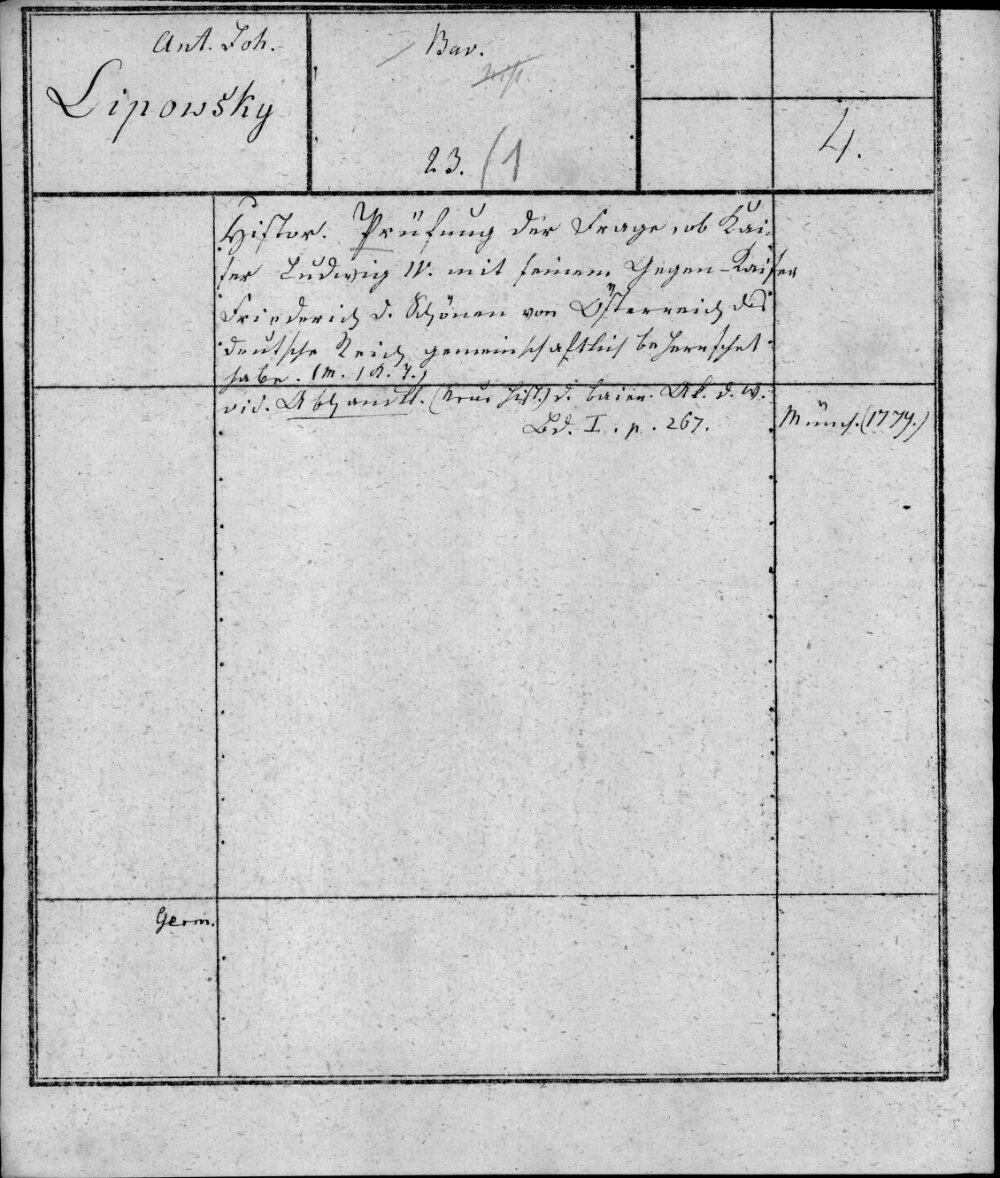 Ant. Joh.
Lipowsky
Bav.
23. (1
4.
Histor. Prüfung der Frage, ob Kai-
ser Ludwig IV. mit seinem Gegen-Kaiser
Friederich d. Schönen von Österreich das
deutsche Reich gemeinschaftlich beherrschet
habe. (m. 1 K. T.)
vid. Abhandl. (Neue hist.) d. baier. Ak. d. W.
Bd. I. p. 267.
Münch. (1779.)
Germ.